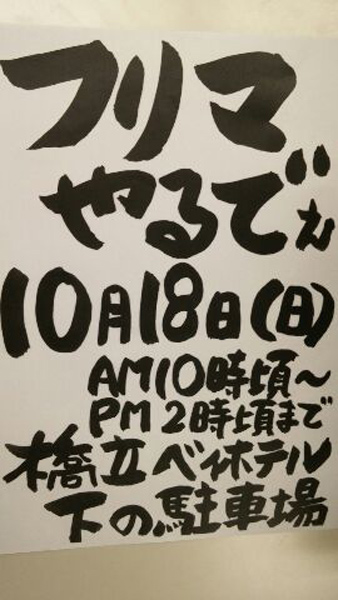 フリマ
やるでぇ
10月18日(日)
AM10時頃~
PM2時頃まで
橋立ベイホテル
下の駐車場